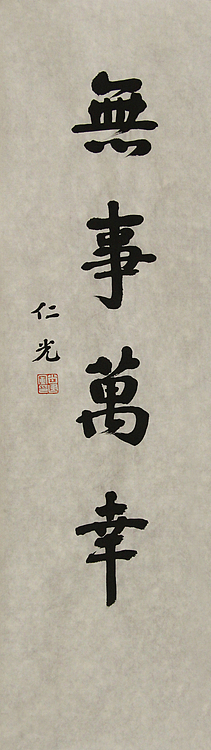 無事萬幸
仁光